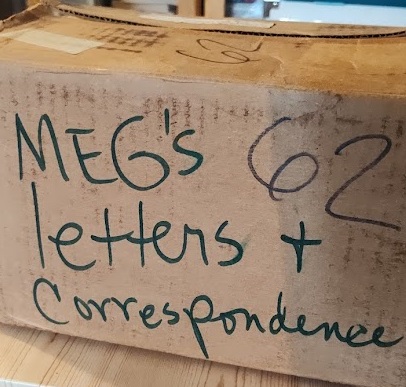 62
MEG's 62
letters +
Correspondence